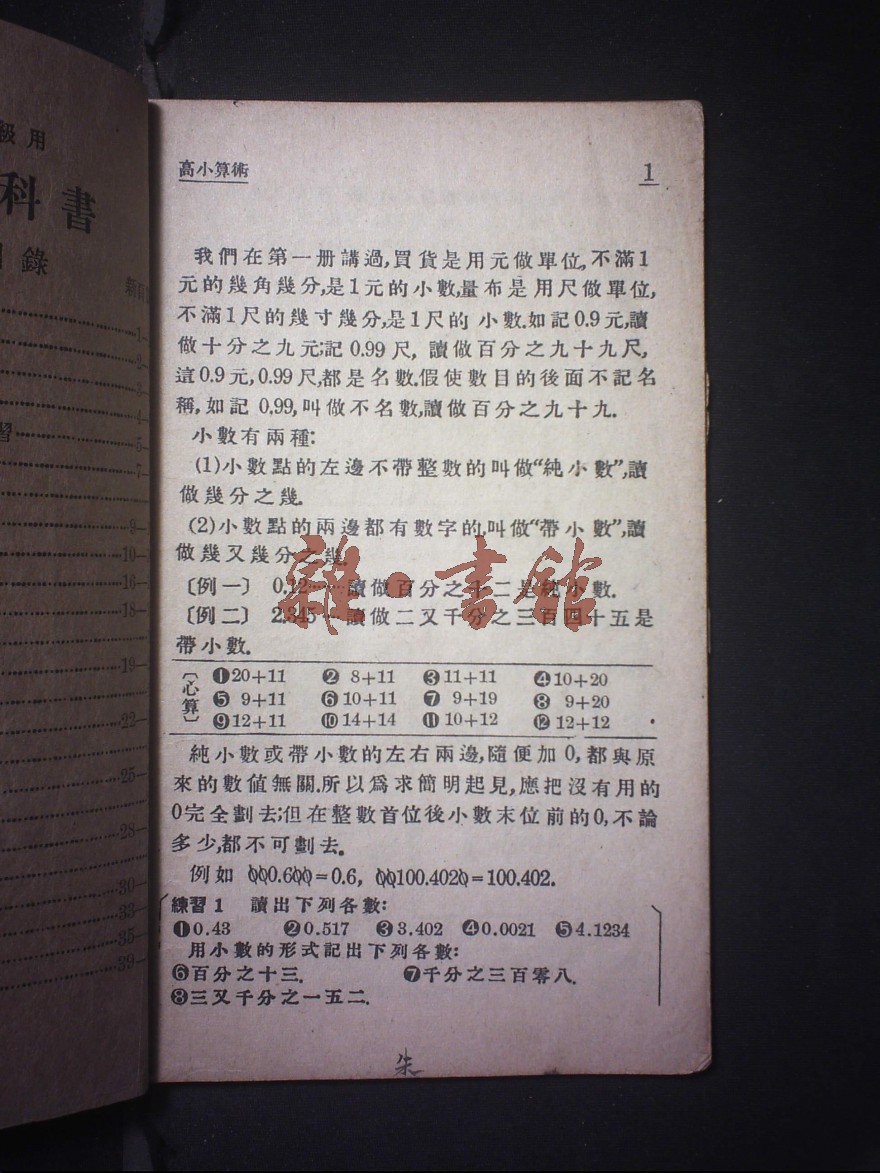 級用
科書
目錄
1-
2-
3-
4-
習 5-
7-
9-
10-
16-
18-
19-
22-
25-
28-
30-
33-
35-
39-
高小算術 1
我們在第一册講過,買貨是用元做單位,不滿1
元的幾角幾分,是1元的小數,量布是用尺做單位,
不滿1尺的幾寸幾分,是1尺的小數.如記0.9元,讀
做十分之九元;記0.99尺,讀做百分之九十九尺,
這0.9元,0.99尺,都是名數.假使數目的後面不記名
稱,如記0.99,叫做不名數,讀做百分之九十九.
小數有兩種:
(1)小數點的左邊不帶整數的叫做“純小數”,讀
做幾分之幾.
(2)小數點的兩邊都有數字的,叫做“帶小數”,讀
做幾又幾分之幾.
〔例一〕 0.12……讀做百分之十二是純小數.
〔例二〕 2.345…讀做二又千分之三百四十五是
帶小數.
〔心算〕
❶20+11 ❷ 8+11 ❸11+11 ❹10+20
❺ 9+11 ❻10+11 ❼ 9+19 ❽ 9+20
❾12+11 ❿14+14 ⓫10+12 ⓬12+12
純小數或帶小數的左右兩邊,隨便加0,都與原
來的數值無關.所以爲求簡明起見,應把沒有用的
0完全劃去;但在整數首位後小數末位前的0,不論
多少,都不可劃去。
例如 000.600=0.6, 00100.4020=100.402.
練習1 讀出下列各數:
❶0.43 ❷0.517 ❸3.402 ❹0.0021 ❺4.1234
用小數的形式記出下列各數:
❻百分之十三. ❼千分之三百零八.
❽三又千分之一五二.
朱
雜·書館